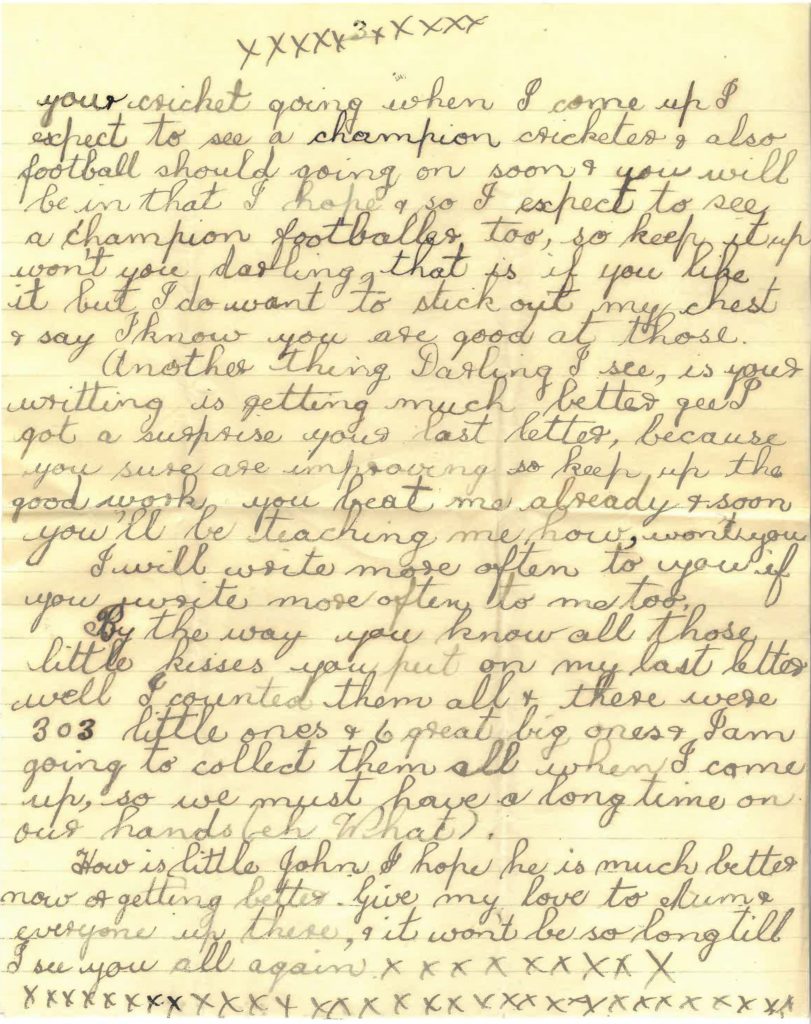 xxxxx 3 x x x x x
your cricket going when I come up I
expect to see a champion cricketer & also
football should going on soon & you will
be in that I hope & so I expect to see
a champion footballer too, so keep it up
won't you darling, that is if you like
it but I do want to stick out my chest
& say I know you are good at those.
Another thing Darling I see, is your
writting is getting much better gee I
got a surprise your last letter, because
you sure are improving so keep up the
good work you beat me already & soon
you'll be teaching me how, won't you
I will write more often to you if
you write more often to me too.
By the way you know all those
little kisses you put on my last letter
well I counted them all & there were
303 little ones & 6 great big ones & I am
going to collect them all when I come
up, so we must have a long time on
our hands (eh What).
How is little John I hope he is much better
now or getting better. Give my love to Mum &
everyone up there, & it won't be so long till
I see you all again x x x x x x x x x x
x x x x x x x x x x x x x x x x x x x x x x x x x x x x x x x x